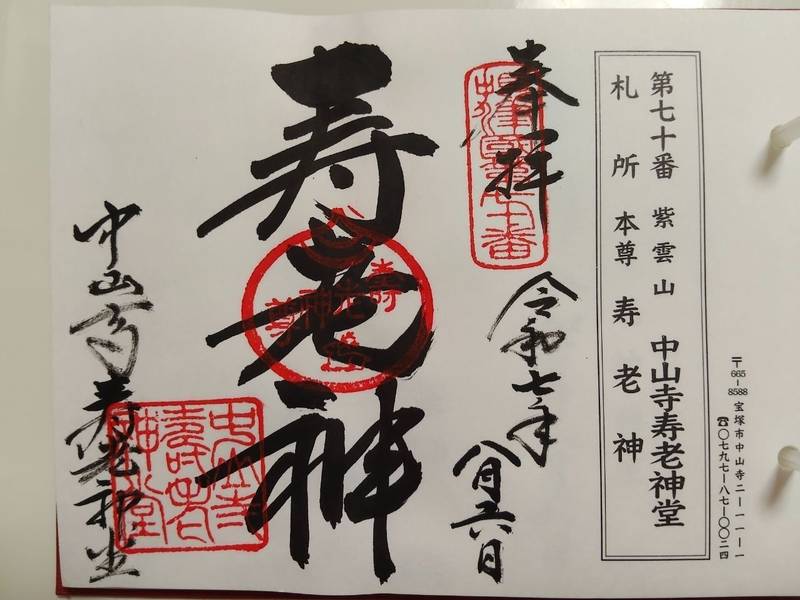 〒665-8588 宝塚市中山寺二ー一一ー一
☎〇七九七ー八七ー〇〇二四
第七十番 紫雲山 中山寺寿老神堂
札所本尊 寿老神
奉拝
令和七年
八月六日
寿老神
壽老神尊
中山寺寿老神堂
中山寺壽老神堂